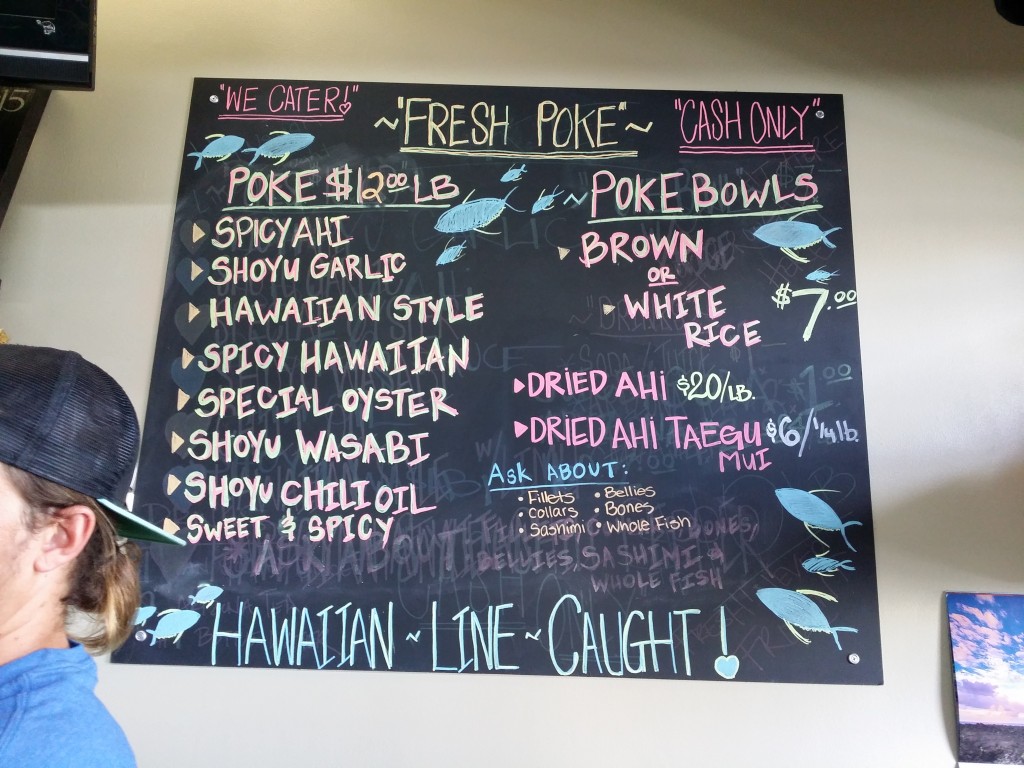 "WE CATER!"
~"FRESH POKE"~
"CASH ONLY"
POKE $12.00 LB
SPICY AHI
SHOYU GARLIC
HAWAIIAN STYLE
SPICY HAWAIIAN
SPECIAL OYSTER
SHOYU WASABI
SHOYU CHILI OIL
SWEET & SPICY
~POKE BOWLS
BROWN
OR
WHITE
RICE
$7.00
DRIED AHI $20/LB.
DRIED AHI TAEGU $6/1/4 lb.
MUI
ASK ABOUT:
• Fillets
• Collars
• Sashimi
• Bellies
• Bones
• Whole Fish
ASK ABOUT
BONES,
BELLIES, SASHIMI &
WHOLE FISH
HAWAIIAN ~ LINE ~ CAUGHT!
15